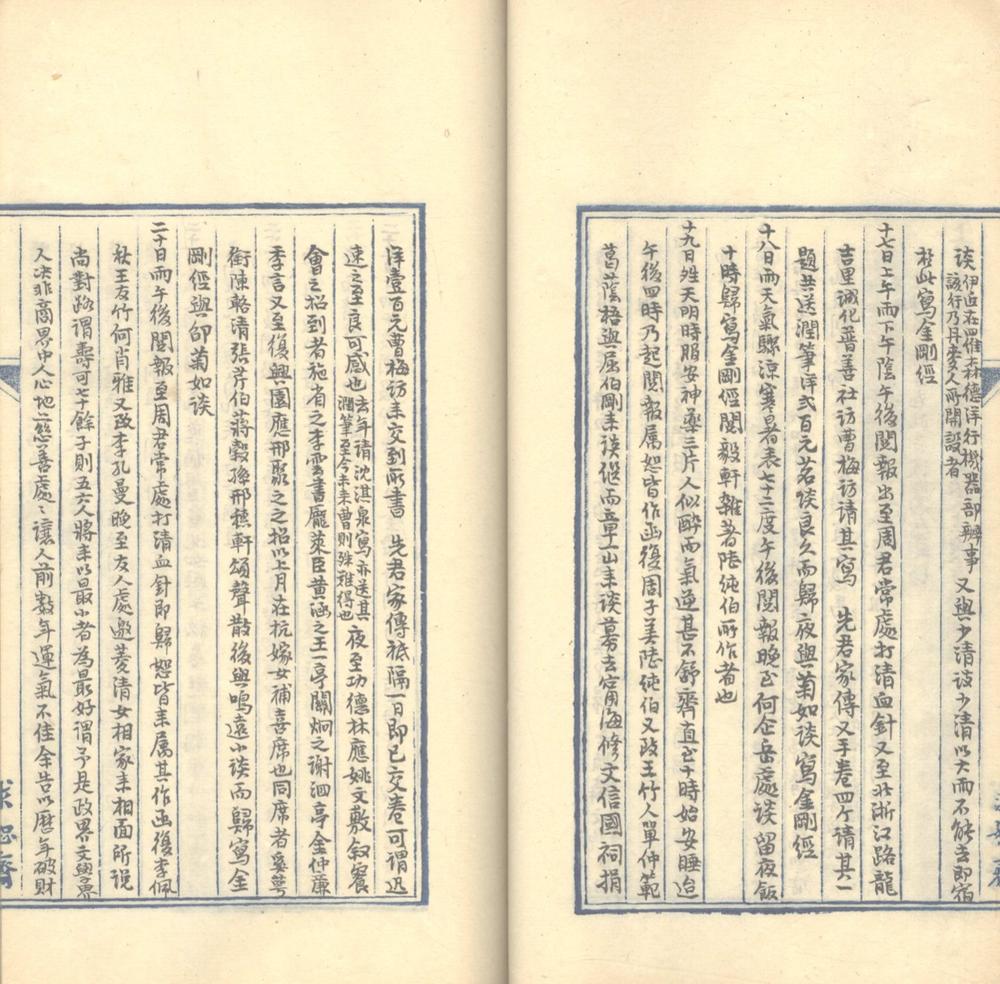 談伊近在四維森德洋行機器部辦事該行乃丹麥人所開設者又與少清談少清以大雨不能去即宿
於此寫金剛經
十七日上午雨下午陰午後閱報出至周君常處打清血針又至北浙江路龍
吉里誠化普善社訪曹梅訪請其寫 先君家傳又手卷四个請其一
題共送潤筆洋弍百元茗談良久而歸夜與菊如談寫金剛經
十八日雨天氣驟涼寒暑表七十三度午後閱報晚至何企岳處談留夜飯
十時歸寫金剛經閱毅軒雜著陸純伯所作者也
十九日姓天明時服安神藥三片人似醉而氣逆甚不舒齊直至十時始安睡迨
午後四時乃起閱報屬恕皆作函復周子美陸純伯又致王竹人單仲範
葛蔭梧與屈伯剛來談伋而章一山來談募去甯海修文信國祠捐
洋壹百元曹梅訪來交到所書 先君家傳祗隔一日即已交卷可謂迅
速之至良可感也去年請沈淇泉寫亦送其潤筆至今未來曹則殊難得也夜至功德林應姚文敷敘餐
會之招到者施省之李雲書龐萊臣黃涵之王一亭關炯之謝泗亭金仲廉
季言又至復興園應邢聚之之招以上月在杭嫁女補喜席也同席者奚萼
銜陳輅清張芹伯蔣穀孫邢穗軒頌聲散後與鳴遠小談而歸寫金
剛經與卯菊如談
二十日雨午後閱報至周君常處打清血針即歸恕皆來屬其作函復李佩
秋王友竹何肖雅又致李孔曼晚至友人處邀菱清女相家來相面所說
尚對路謂壽可七十餘子則五六人將來以最小者為最好謂予是政界文學界
人决非商界中人心地慈善處〻讓人前數年運氣不佳余告以歷年破財
求恕齋